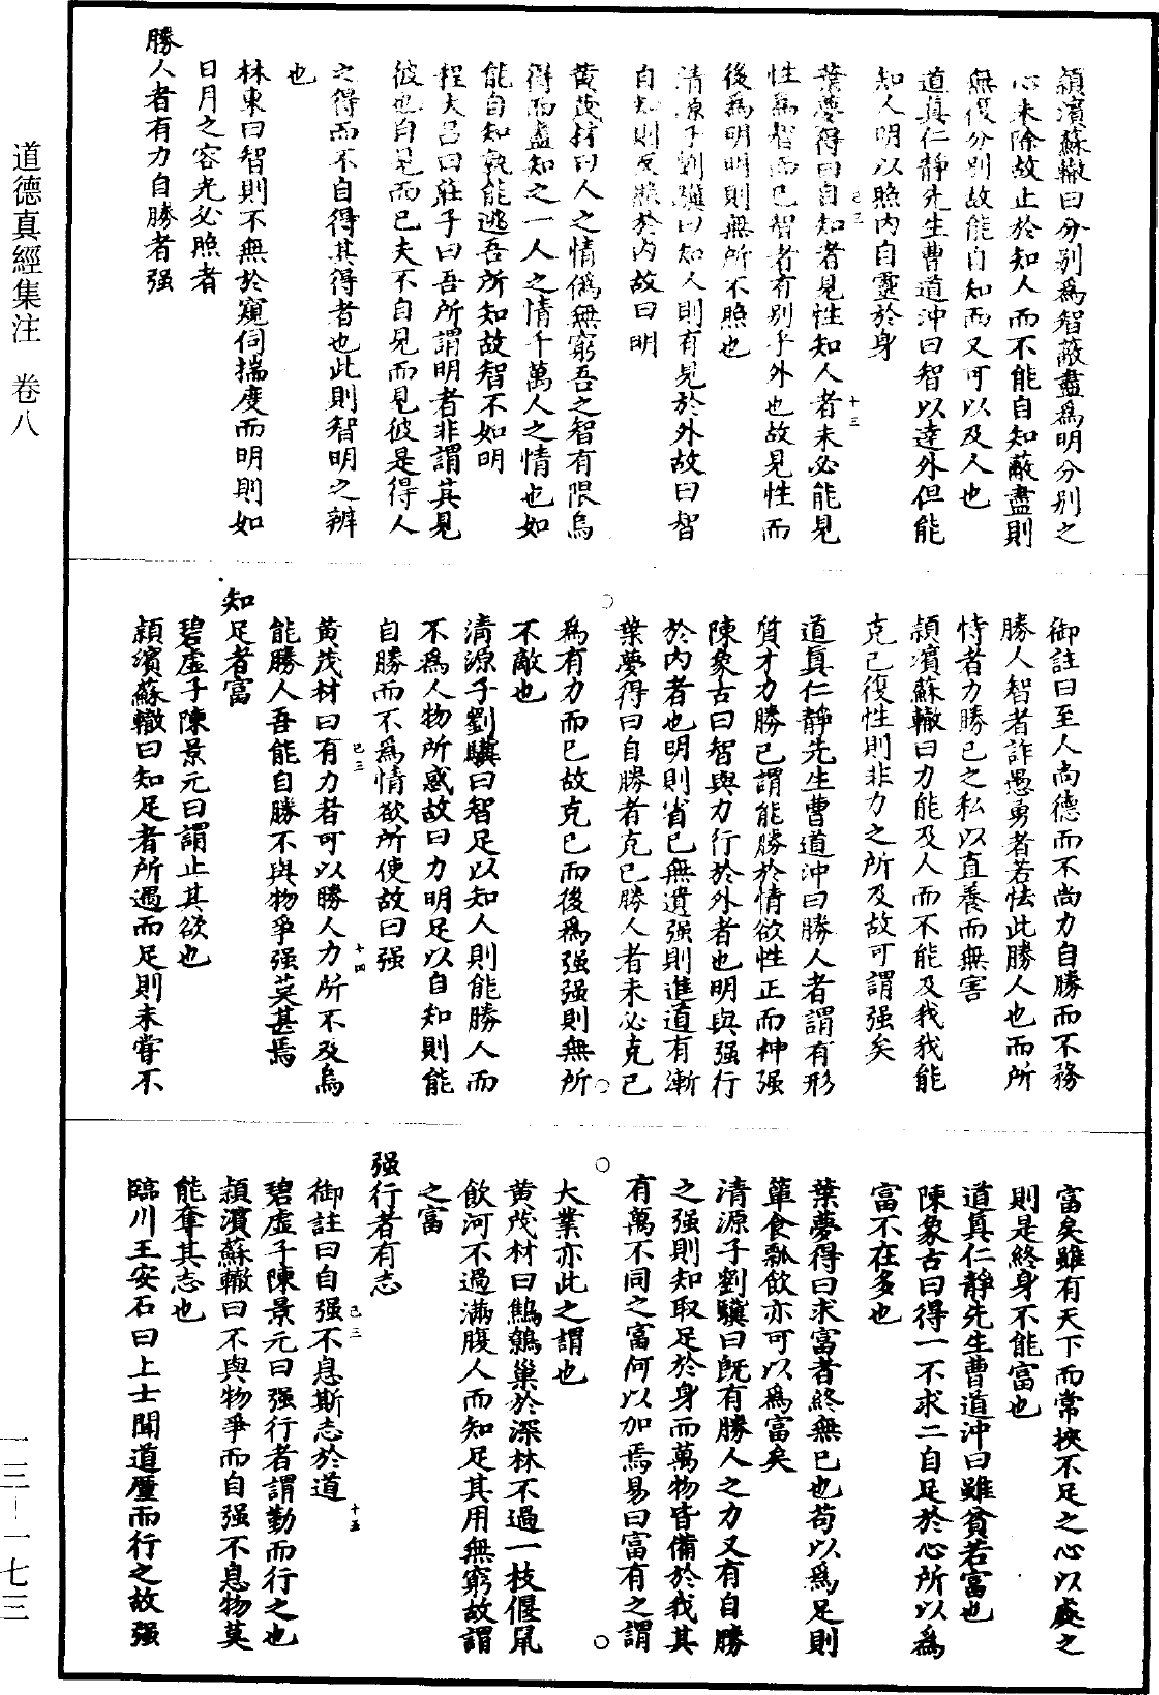 穎濱蘇轍曰分別爲智蔽盡爲明分別之
心未除故止於知人而不能自知蔽盡則
無復分別故能自知而又可以及人也
道真仁靜先生曹道沖曰智以達外但能
知人明以照內自靈於身
葉夢得曰自知者見性知人者未必能見
性爲智而已智者有別乎外也故見性而
後爲明明則無所不照也
清源子劉驥曰知人則有見於外故曰智
自知則反照於內故曰明
黃茂材曰人之情僞無窮吾之智有限烏
得而盡知之一人之情千萬人之情也如
能自知孰能逃吾所知故智不如明
程大昌曰莊子曰吾所謂明者非謂其見
彼也自見而已夫不自見而見彼是得人
之得而不自得其得者也此則智明之辨
也
林東曰智則不無於窺伺揣度而明則如
日月之容光必照者
勝人者有力自勝者强
御註曰至人尚德而不尚力自勝而不務
勝人智者詐愚勇者若怯此勝人也而所
恃者力勝己之私以直養而無害
穎濱蘇轍曰力能及人而不能及我我能
克己復性則非力之所及故可謂强矣
道真仁靜先生曹道沖曰勝人者謂有形
質才力勝己謂能勝於情欲性正而神强
陳象古曰智與力行於外者也明與强行
於內者也明則省己無遺强則進道有漸
葉夢得曰自勝者克己勝人者未必克己
爲有力而已故克己而後爲强强則無所
不敵也
清源子劉驥曰智足以知人則能勝人而
不爲人物所惑故曰力明足以自知則能
自勝而不爲情欲所使故曰强
黃茂材曰有力者可以勝人力所不及烏
能勝人吾能自勝不與物爭强莫甚焉
知足者富
碧虛子陳景元曰謂止其欲也
穎濱蘇轍曰知足者所遇而足則未嘗不
富矣雖有天下而常挾不足之心以處之
則是終身不能富也
道真仁靜先生曹道沖曰雖貧若富也
陳象古曰得一不求二自足於心所以爲
富不在多也
葉夢得曰求富者終無已也苟以爲足則
簞食瓢飲亦可以爲富矣
清源子劉驥曰既有勝人之力又有自勝
之强則知取足於身而萬物皆備於我其
有萬不同之富何以加焉易曰富有之謂
大業亦此之謂也
黃茂材曰鷦鷯巢於深林不過一枝偃鼠
飲河不過滿腹人而知足其用無窮故謂
之富
强行者有志
御註曰自强不息斯志於道
碧虛子陳景元曰强行者謂勤而行之也
穎濱蘇轍曰不與物爭而自强不息物莫
能奪其志也
臨川王安石曰上士聞道廑而行之故强
已三
十三
已三
十四
已三
十五
道德真經集注 卷八
一三－一七三